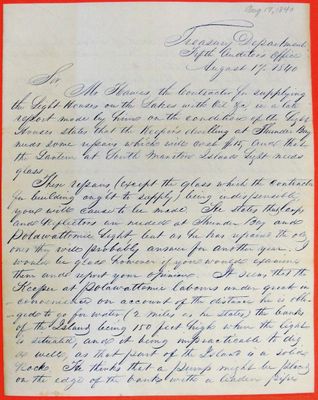 Aug 17, 1840
Treasury Department
Fifth Auditors Office
August 17. 1840
Sir
Mr Hawes the Contractor for supplying
the Light Houses on the Lakes with Oil &c, in a late
report made by him on the condition of the Light
Houses states that the Keepers dwelling at Thunder Bay
needs some repairs which will cost and that
the Lantern at South Manitou Island Light needs
glass
These repairs (except the glass which the Contractor
for building ought to supply) being indispensable
you will cause to be made. He states that Lamps
and Reflectors are needed at Thunder Bay and
Potawattomie Light, but as he has repaired the old
ones they will probably answer for another year. I
would be glad however if you would examine
them and report your opinion. It seems that the
Keeper at Potawattomie labours under great in-
convenience on account of the distance he is obli-
ged to go for water (2 miles as he states) the banks
of the Island being 150 feet high where the light
is situated, and it being impracticable to dig
a well, as that part of the Island is a solid
Rock. He thinks that a pump might be placed
on the edge of the bank with a leaden pipe